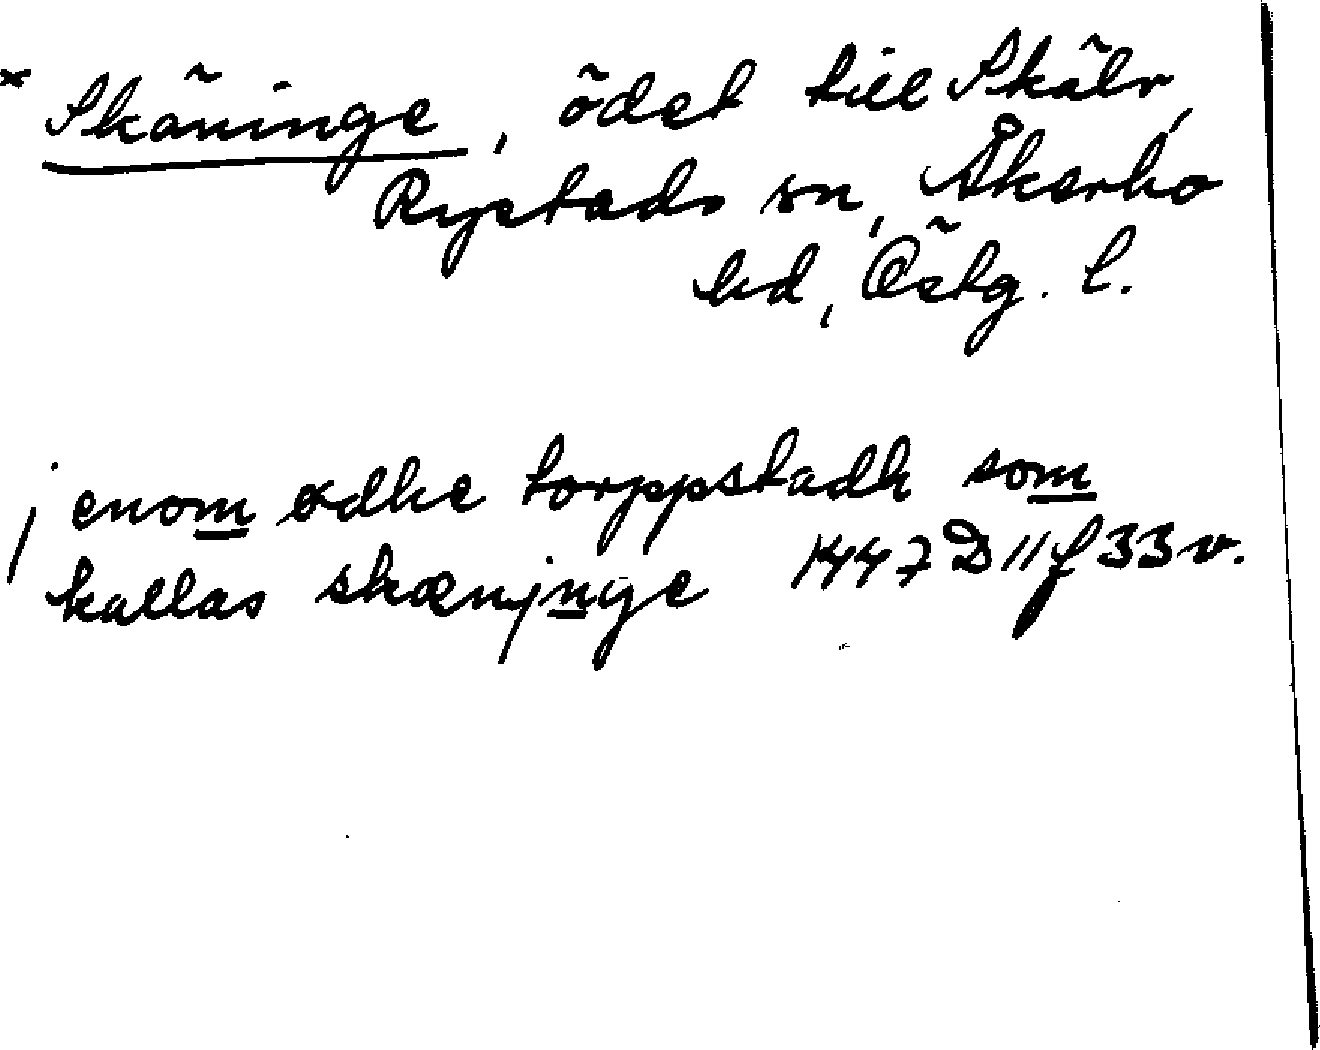 * Skäninge, ödet till Skälv,
Rystads sn, Åkerbo
hd, Östg. l.
j enom ødhe torppstadh som
kallas skænjnge 1447 D 11 f 33 v.